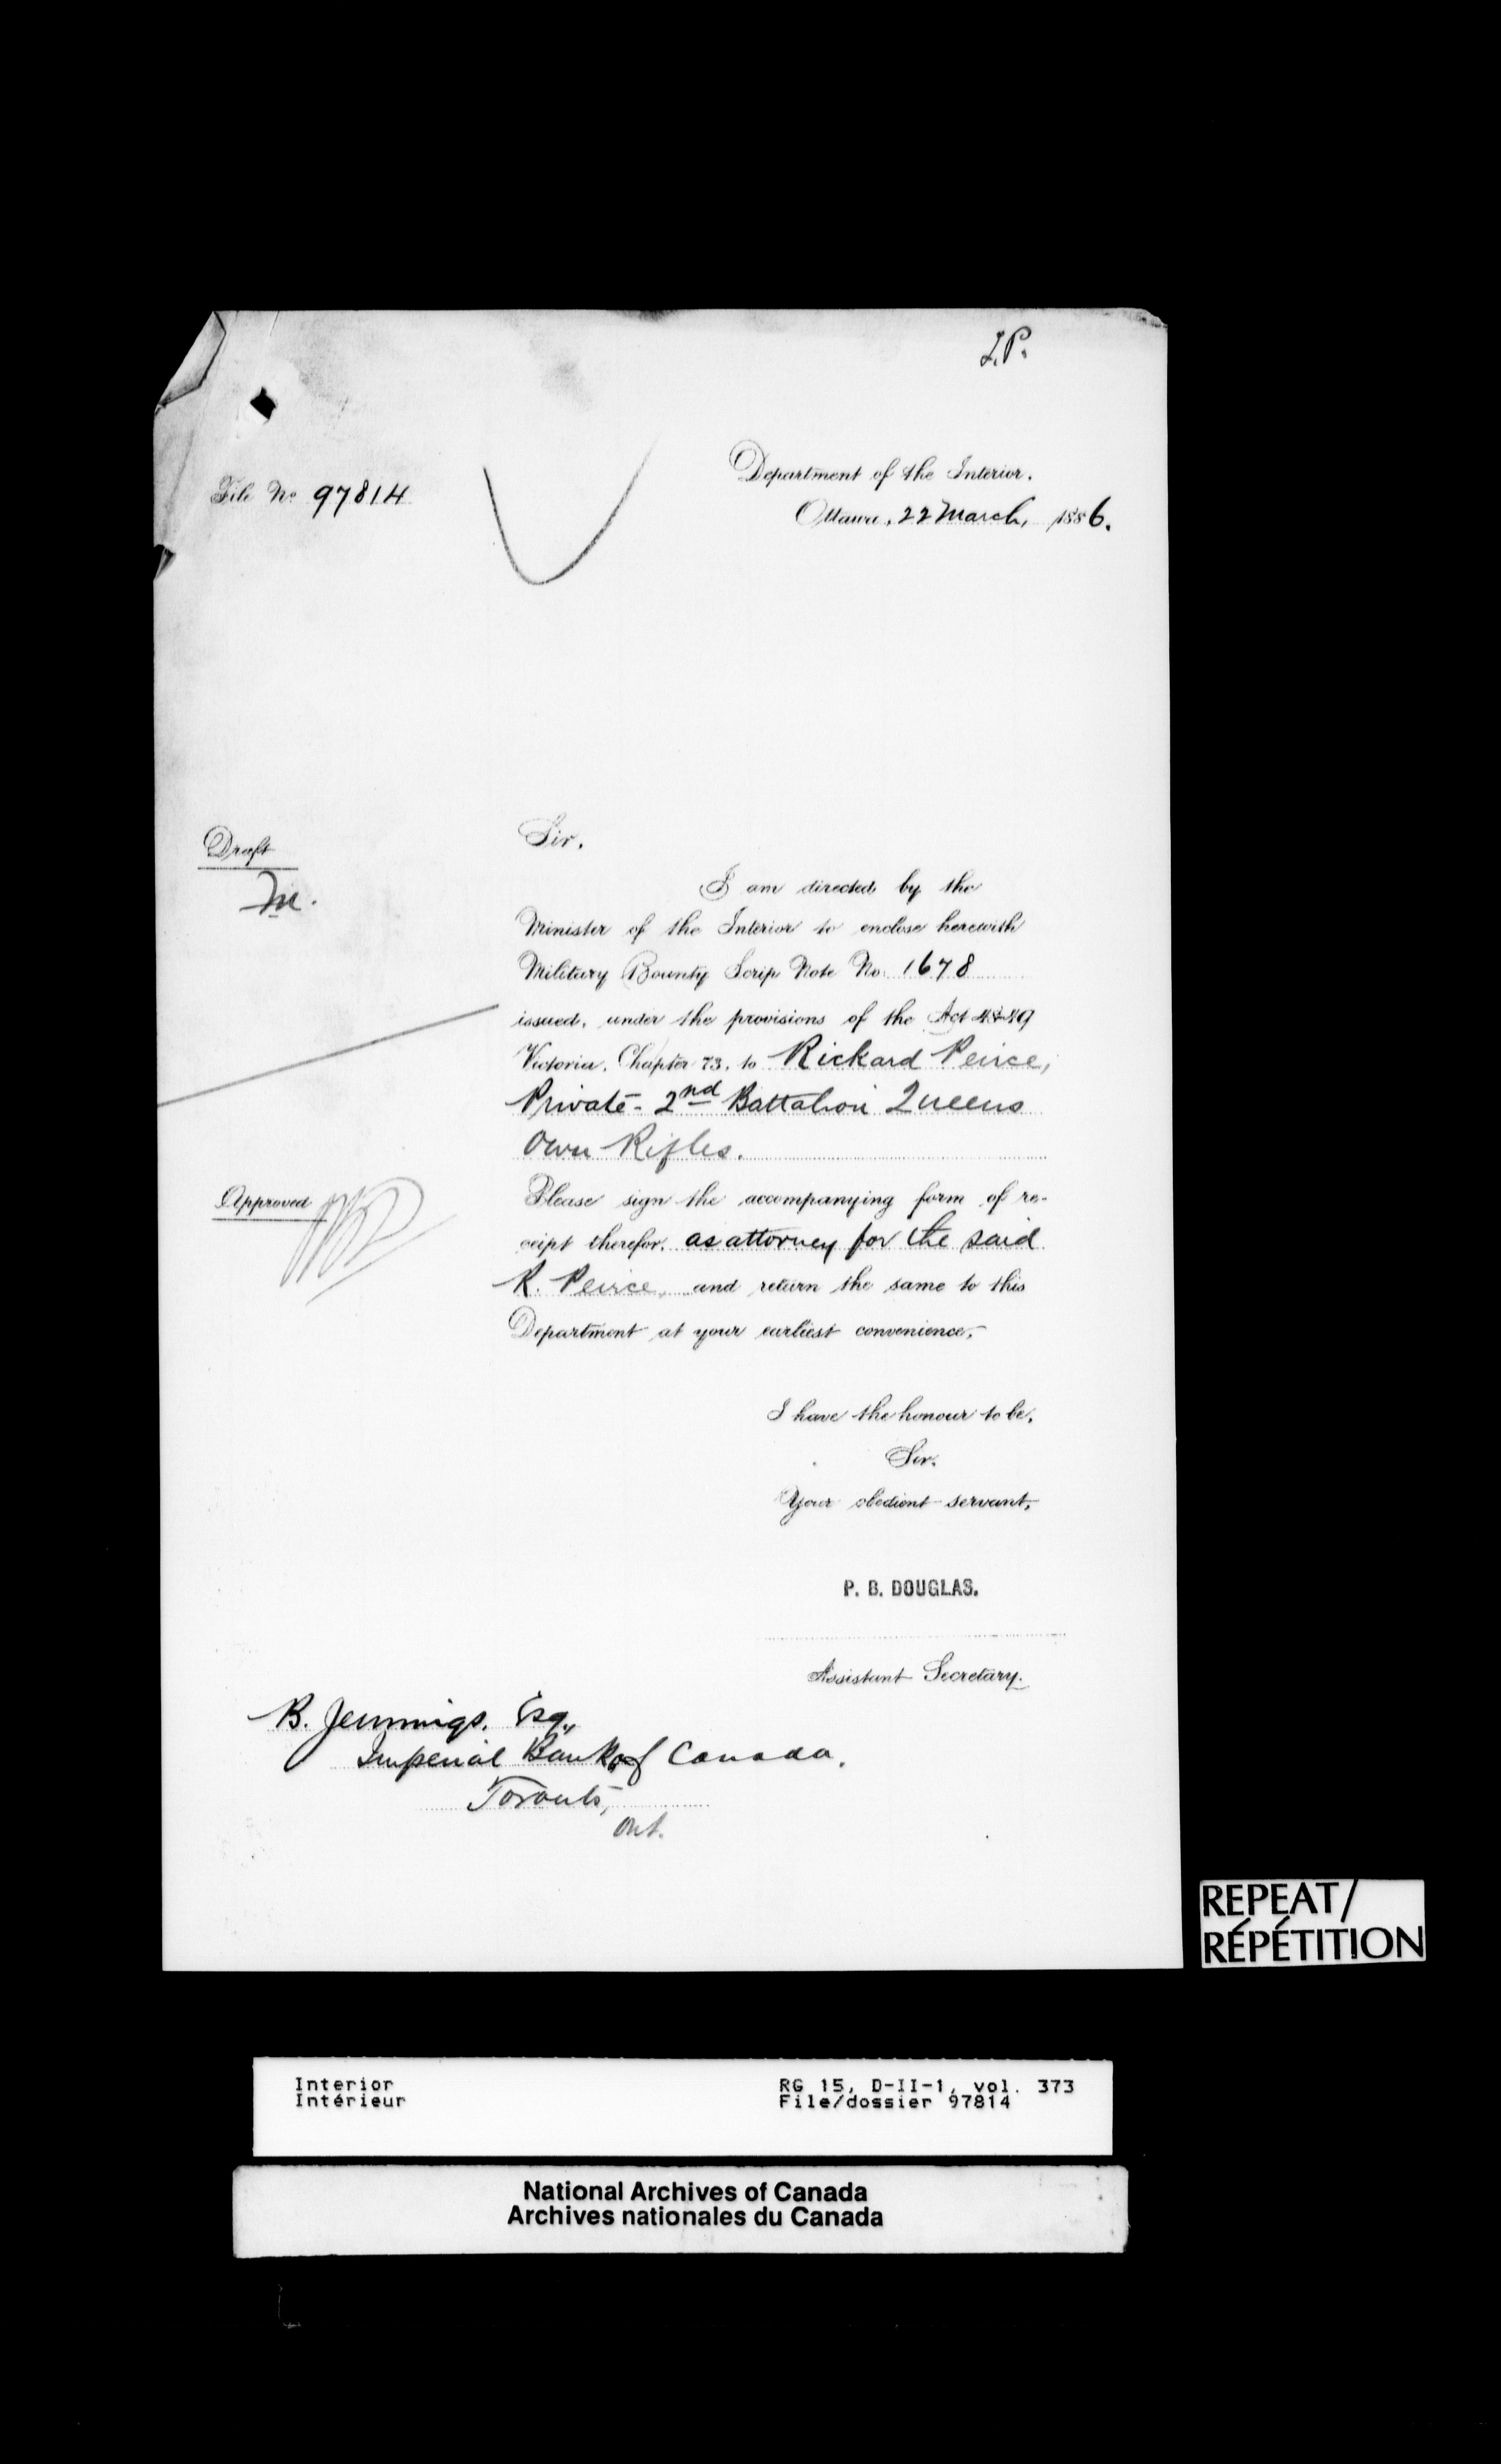 L.P.
File No. 97814
Department of the Interior.
Ottawa, 22 March, 1886.
Draft
M.
Sir,
I am directed by the
Minister of the Interior to enclose herewith
Military Bounty Scrip Note No. 1678
issued, under the provisions of the Act 48-49
Victoria, Chapter 73, to Rickard Peirce,
Private - 2nd Battalion Queens
Own Rifles.
Approved
Please sign the accompanying form of re-
ceipt therefor, as attorney for the said
R. Peirce, and return the same to this
Department at your earliest convenience.
I have the honour to be,
Sir,
Your obedient servant,
P. B. DOUGLAS.
Assistant Secretary.
B. Jennings, Esq.,
Imperial Bank of Canada.
Toronto,
Ont.
REPEAT/
RÉPÉTITION
Interior
Intérieur
RG 15, D-II-1, vol. 373
File/dossier 97814
National Archives of Canada
Archives nationales du Canada